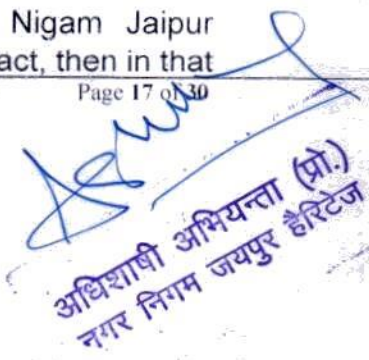 Nigam Jaipur
act, then in that
Page 17 of 30
अधिशाषी अभियन्ता (प्रो.)
नगर निगम जयपुर हैरिटेज